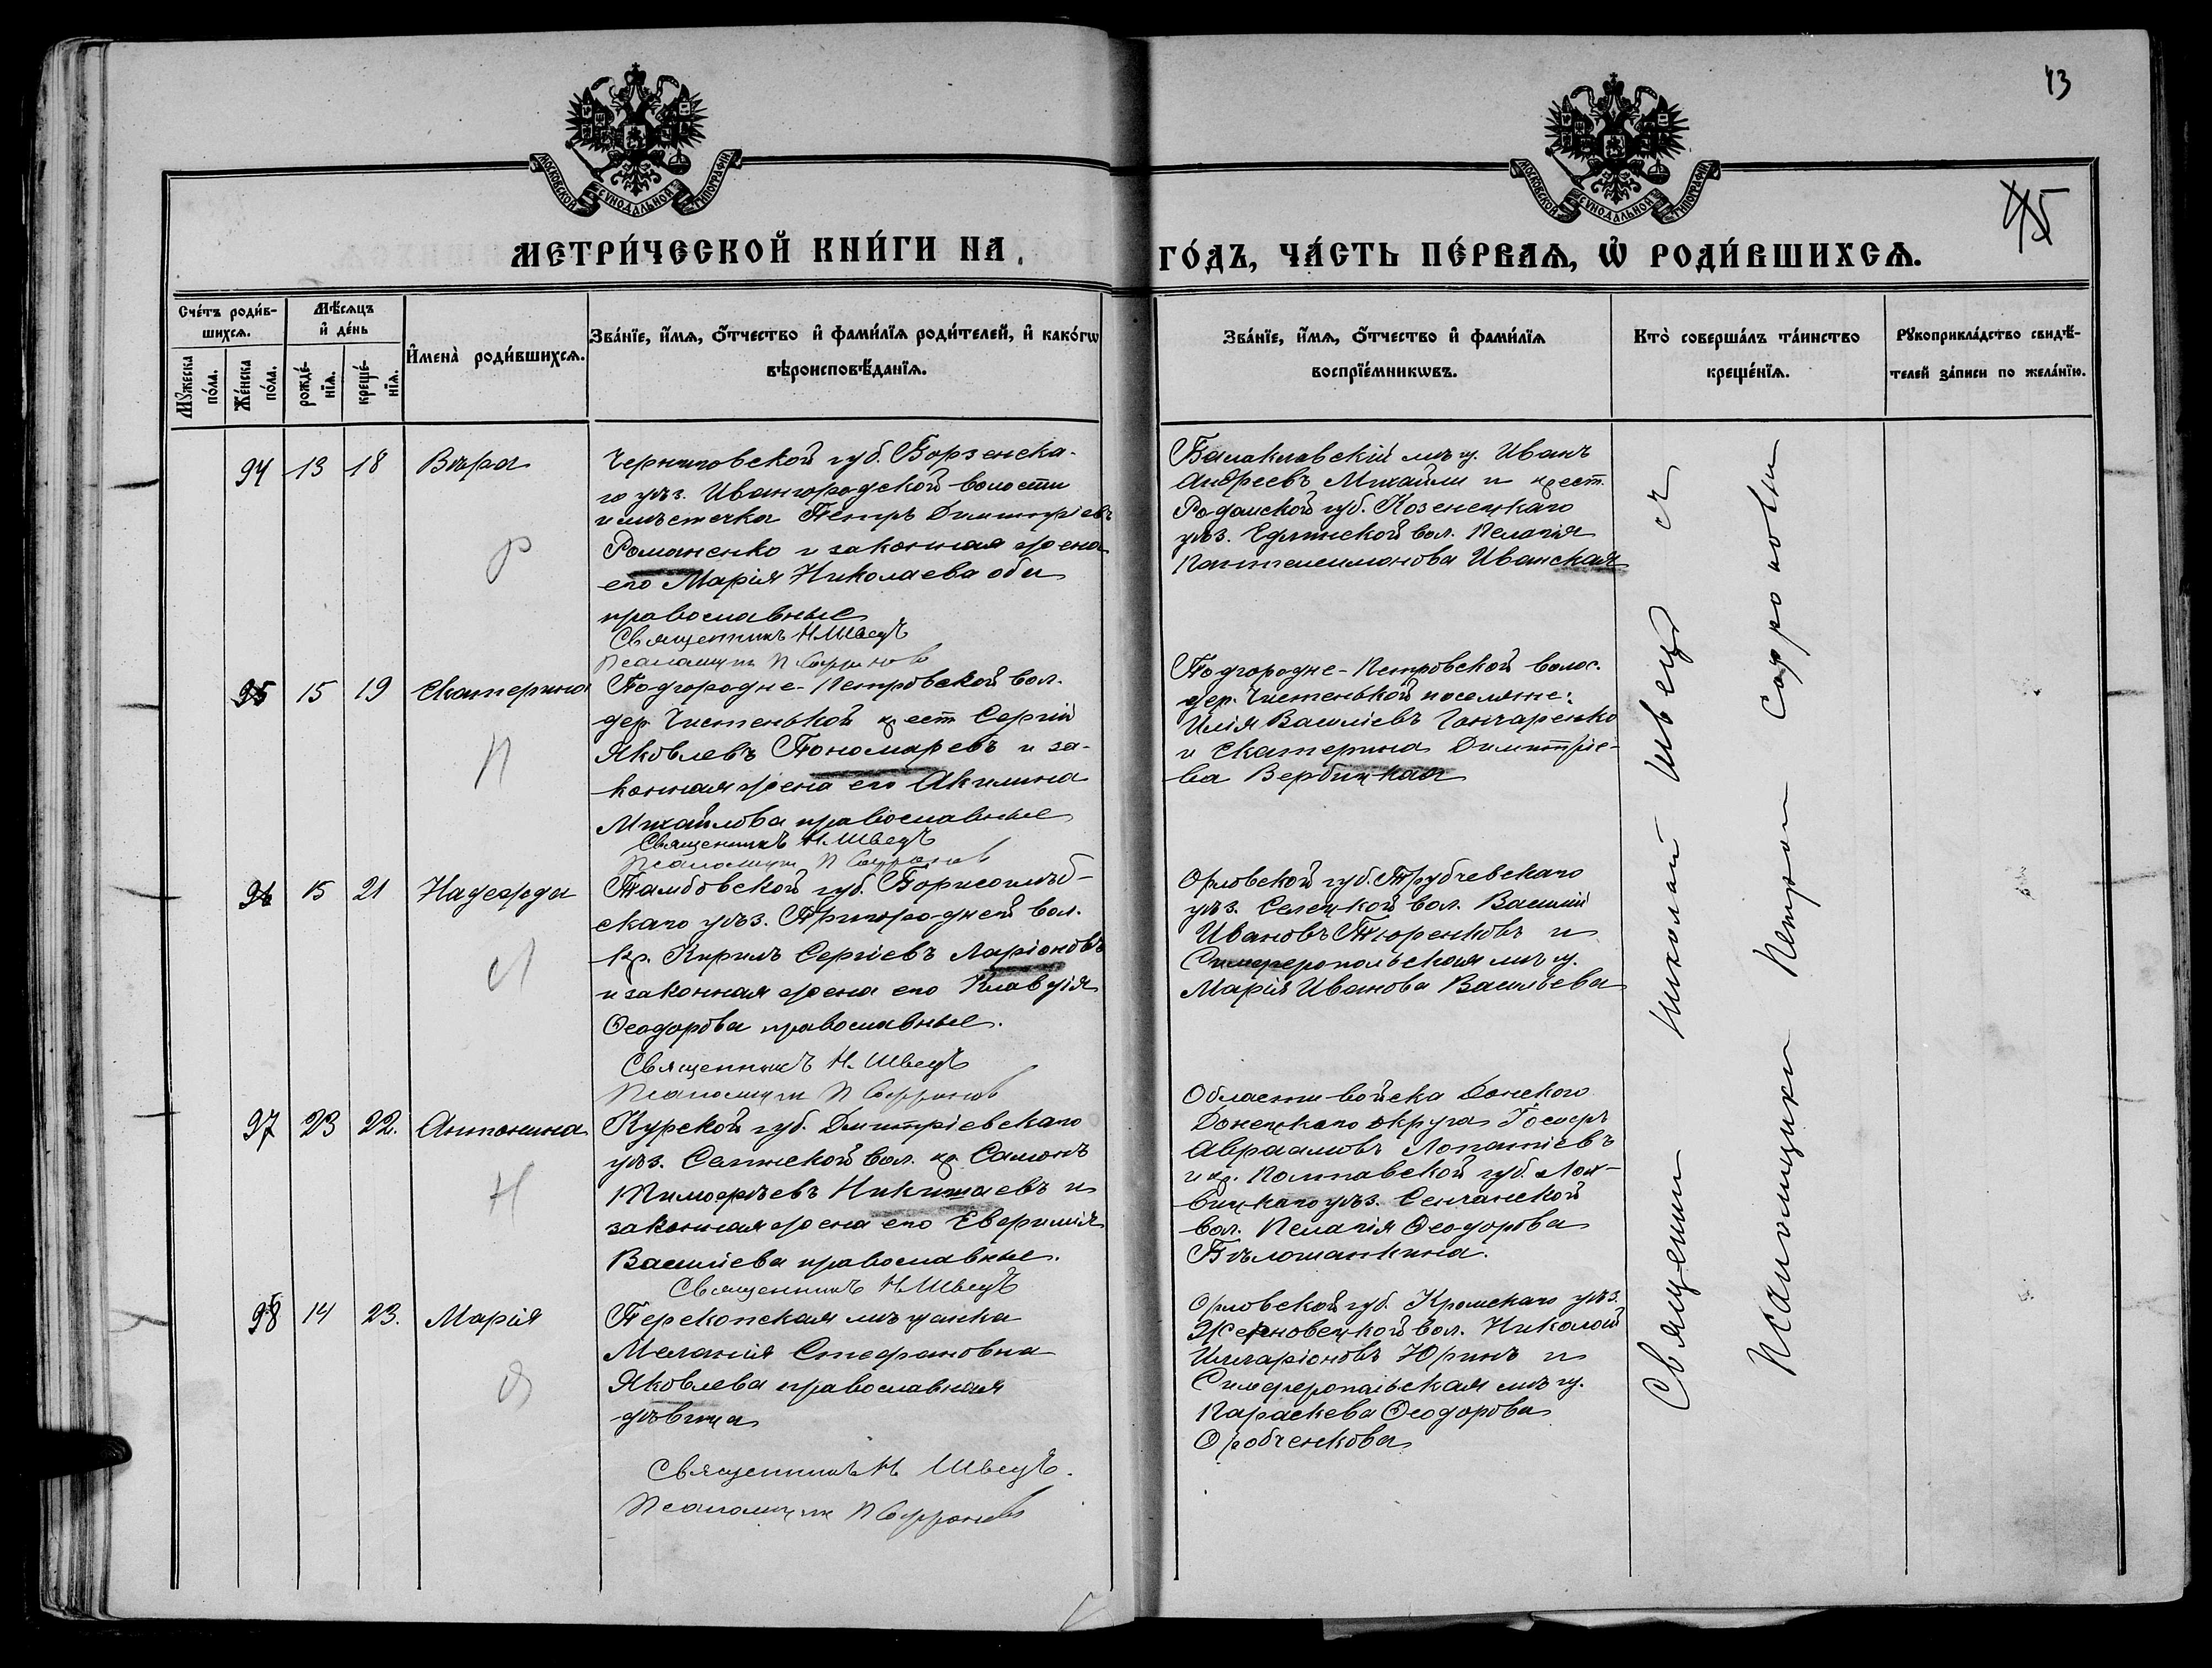 43
45
МОСКОВСКОЙ СѴНОДАЛЬНОЙ ТИПОГРАФІИ
МОСКОВСКОЙ СѴНОДАЛЬНОЙ ТИПОГРАФІИ
МЕТРИ́ЧЕСКОЙ КНИ́ГИ НА
ГО́ДЪ, ЧА́СТЬ ПЕ́РВАѦ, Ѡ҆ РОДИ́ВШИХСѦ.
Сче́тъ роди́в-
шихсѧ.
Мꙋ́жеска по́ла.
Же́нска по́ла.
Мѣ́сѧцъ
и҆ де́нь
рожде́-нїѧ.
креще́-нїѧ.
И҆мена̀ роди́вшихсѧ.
Зва́нїе, и҆́мѧ, ѻ҆́тчество и҆ фами́лїѧ роди́телей, и҆ како́гѡ
вѣроисповѣ́данїѧ.
Зва́нїе, и҆́мѧ, ѻ҆́тчество и҆ фами́лїѧ
воспрїе́мникѡвъ.
Кто̀ соверша́лъ та́инство
креще́нїѧ.
Рꙋкоприкла́дство свидѣ́-
телей за́писи по жела́нїю.
94 13 18 Вѣра
Черниговской губ. Борзенска-
го уѣз. Ивангородской волости
и мѣстечка Петръ Димитріевъ
Романенко и законная жена
его Марія Николаева оба
православные
Священникъ Н. Швецъ
Псаломщик П Софронов
Балаклавскій мѣщ. Иванъ
Андреевъ Михайли и крест.
Радомской губ. Козенецкаго
уѣз. Едлинской вол. Пелагія
Пантелеимонова Иванская
Р
95 15 19 Екатерина
Подгородне-Петровской вол.
дер. Чистенькой крест Сергій
Яковлевъ Пономаревъ и за-
конная жена его Акилина
Михайлова православные
Священникъ Н. Швецъ
Псаломщик П Софронов
Подгородне-Петровской волос.
дер. Чистенькой поселяне:
Илія Василіевъ Гончаренко
и Екатерина Димитріе-
ва Вербицкая
П
96 15 21 Надежда
Тамбовской губ. Борисоглѣб-
скаго уѣз. Пригородней вол.
кр. Кирилъ Сергіевъ Ларіоновъ
и законная жена его Клавдія
Ѳеодорова православные.
Священникъ Н. Швецъ
Псаломщик П Софронов
Орловской губ. Трубчевскаго
уѣз. Селецкой вол. Василій
Ивановъ Тюренковъ и
Симферопольская мѣщ.
Марія Иванова Васильева
Л
97 23 22. Антонина
Курской губ. Димитріевскаго
уѣз. вол. кр.
Тимофѣевъ Никитаевъ и
законная жена его Евфимія
Василіева православные.
Священникъ Н Швецъ
Области войска Донского
Донецкаго округа Іосифъ
Авраамовъ
и кр. Полтавской губ. Лох-
вицкаго уѣз. Сенчанской
вол. Пелагія Ѳеодорова
Бѣлошапкина.
Н
98 14 23. Марія
Перекопская мѣщанка
Меланія Стефановна
Яковлева православная
дѣвица
Священникъ Н Швецъ.
Псаломщик П Софронов
Орловской губ. Кромскаго уѣз.
Жерновецкой вол. Николай
Илларіоновъ Юринъ и
Симферопольская мѣщ.
Параскева Ѳеодорова
Оробченкова
Я
Священник Николай Швецъ с
Псаломщиком Петром Софроновым